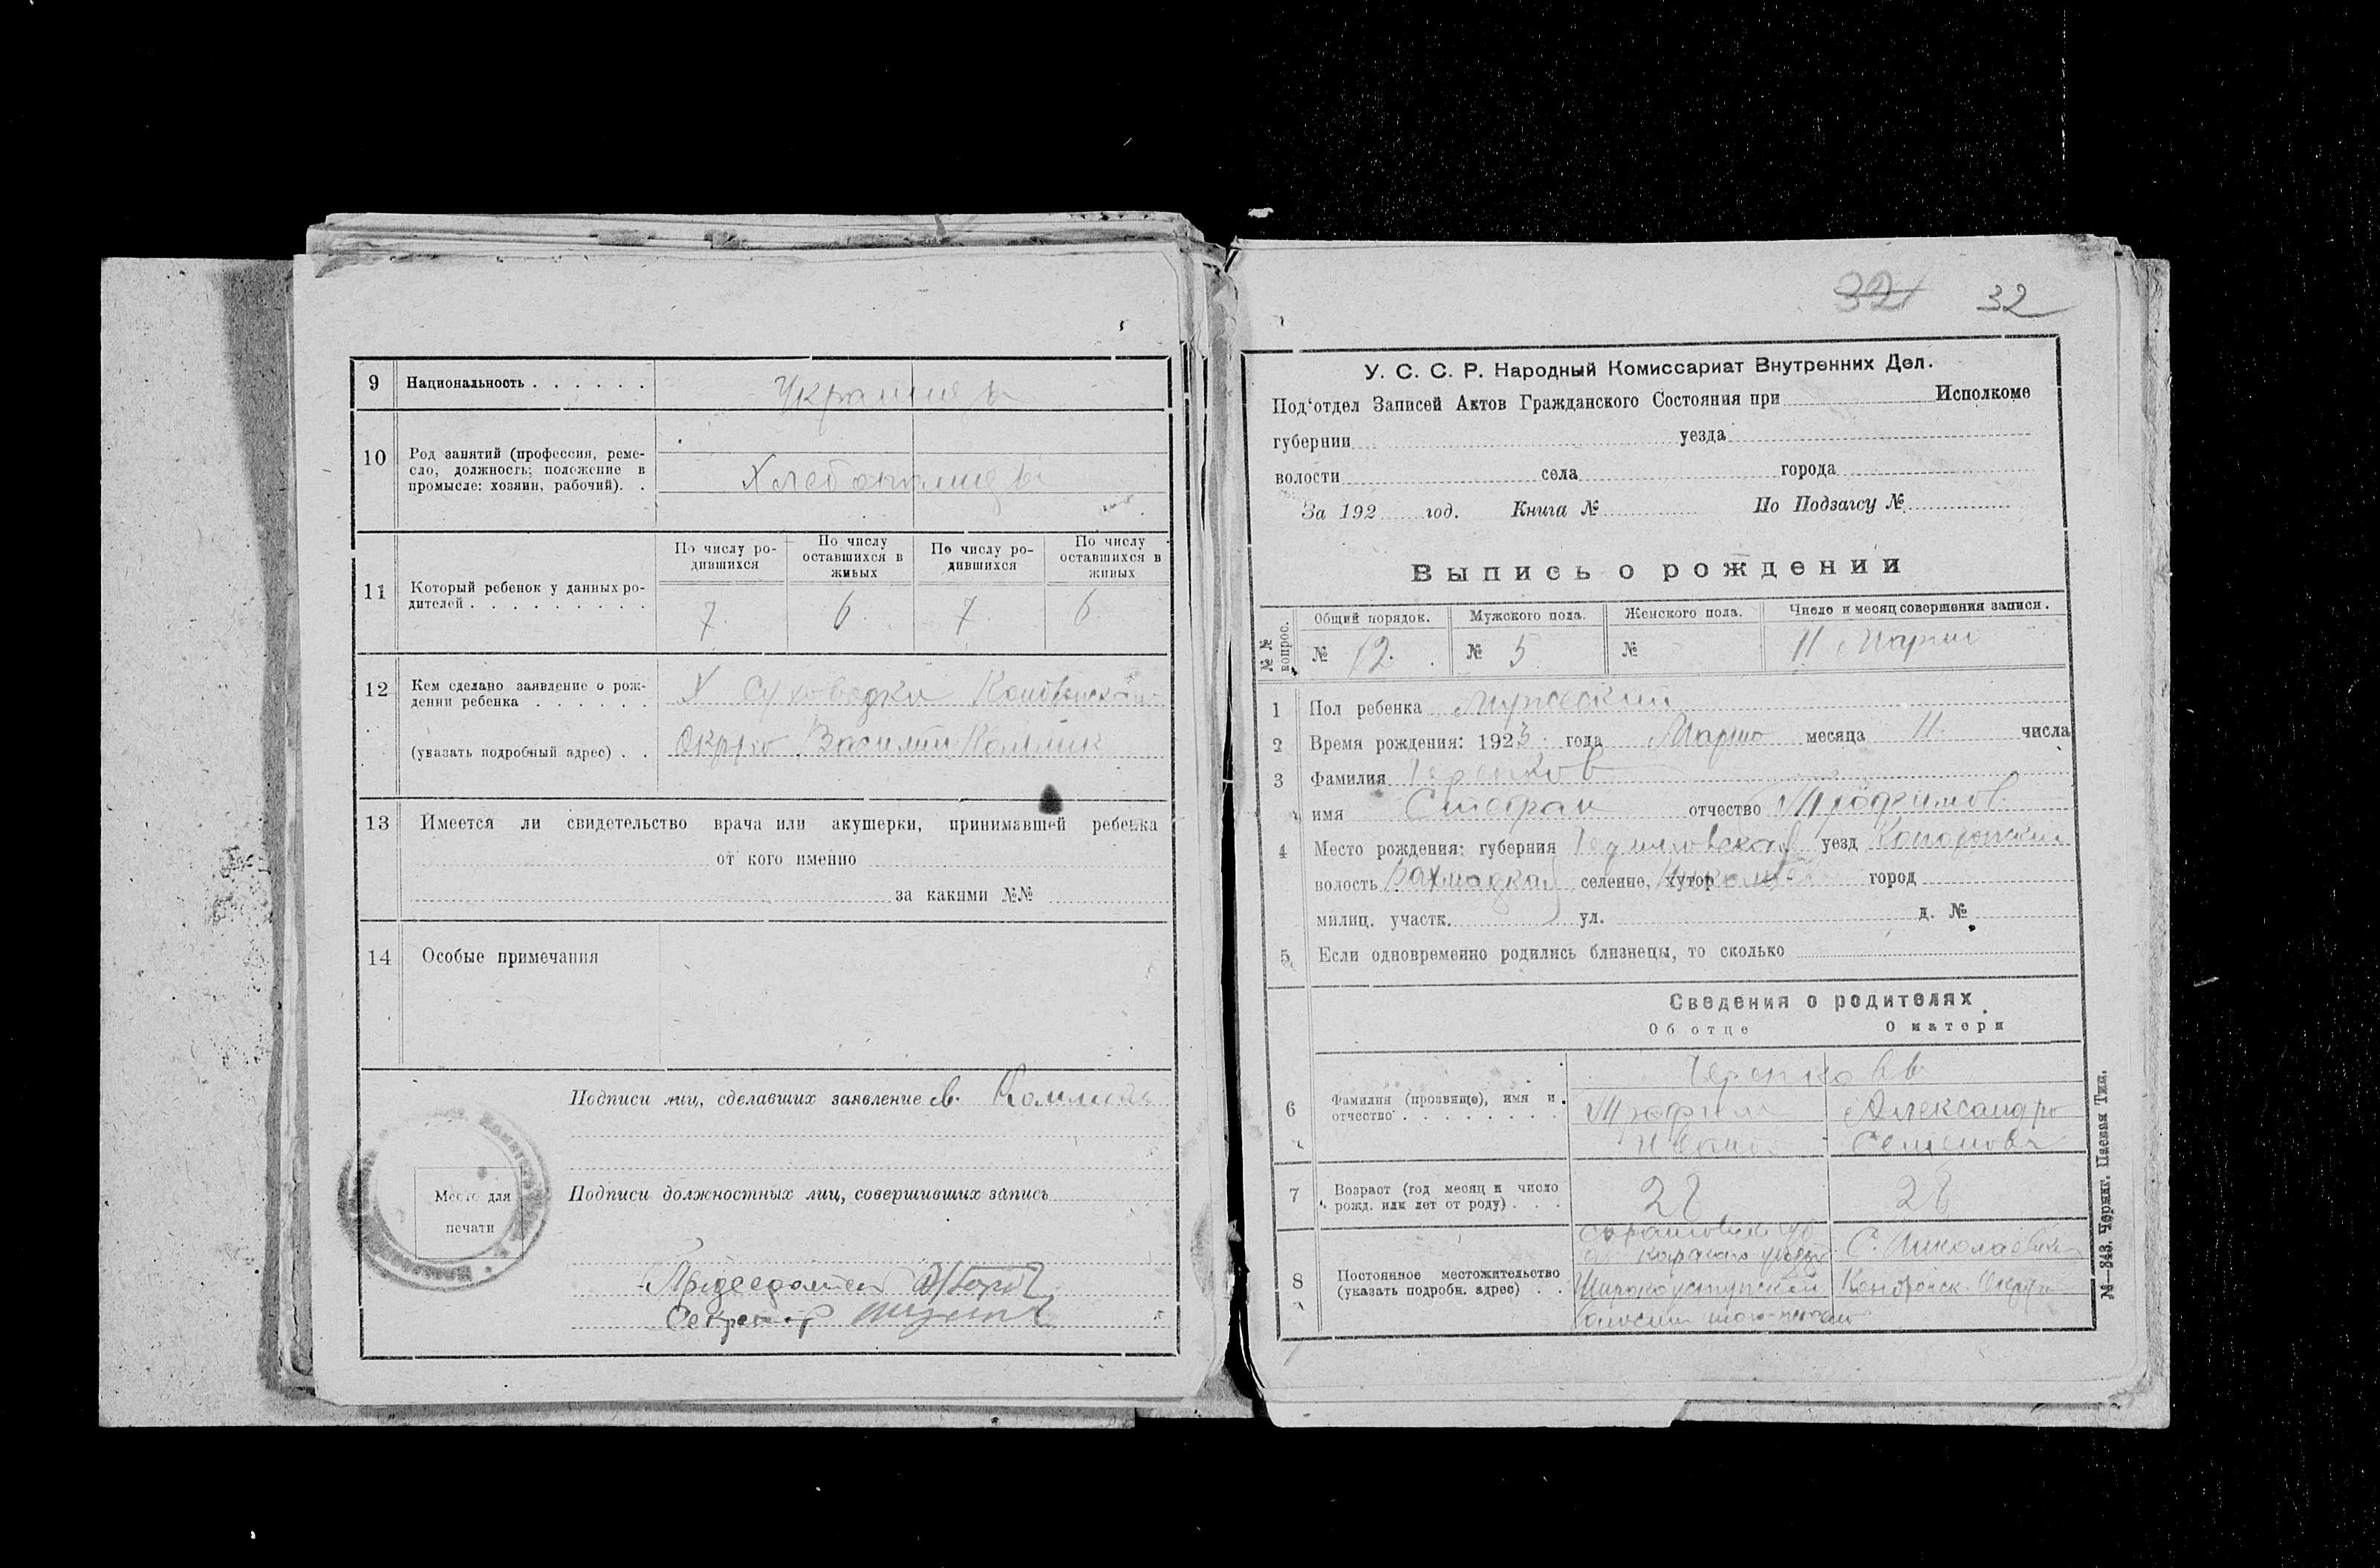 9 Национальность . . . . . .
Украинцы
10 Род занятий (профессия, реме-
сло, должность; положение в
промысле: хозяин, рабочий). .
Хлебопашцы
11 Который ребенок у данных ро-
дителей . . . . . . . . .
По числу ро-
дившихся
По числу
оставшихся в
живых
По числу ро-
дившихся
По числу
оставшихся в
живых
7. 6. 7. 6
12 Кем сделано заявление о рож-
дении ребенка . . . . . .
Х Суховодки
(указать подробный адрес) . .
Василий
13 Имеется ли свидетельство врача или акушерки, принимавшей ребенка
от кого именно
за какими №№
14 Особые примечания
Подписи лиц, сделавших заявление
Место для
печати
Подписи должностных лиц, совершивших запись
Председатель
Секретар
32 32
У. С. С. Р. Народный Комиссариат Внутренних Дел.
Под'отдел Записей Актов Гражданского Состояния при Исполкоме
губернии уезда
волости села города
За 192 год. Книга № По Подзагсу №
Выпись о рождении
№ № вопрос.
Общий порядок. Мужского пола. Женского пола. Число и месяц совершения записи.
№ 12. № 5 № 11 Марта
1 Пол ребенка Мужеский
2 Время рождения: 1923 года Марта месяца 11. числа
3 Фамилия
имя Стефан отчество Трофимов
4 Место рождения: губерния уезд Конотопский
волость Бахмацкая селение, хутор город
милиц. участк. ул. д. №
5 Если одновременно родились близнецы, то сколько
Сведения о родителях
Об отце О матери
6 Фамилия (прозвище), имя и
отчество . . . . . . . .
Трофим Александра
Иванов Семенова
7 Возраст (год месяц и число
рожд. или лет от роду) . . .
28 28
8 Постоянное местожительство
(указать подробн. адрес) . .
С. Николаевка
№—343. Черниг. Паевая Тип.